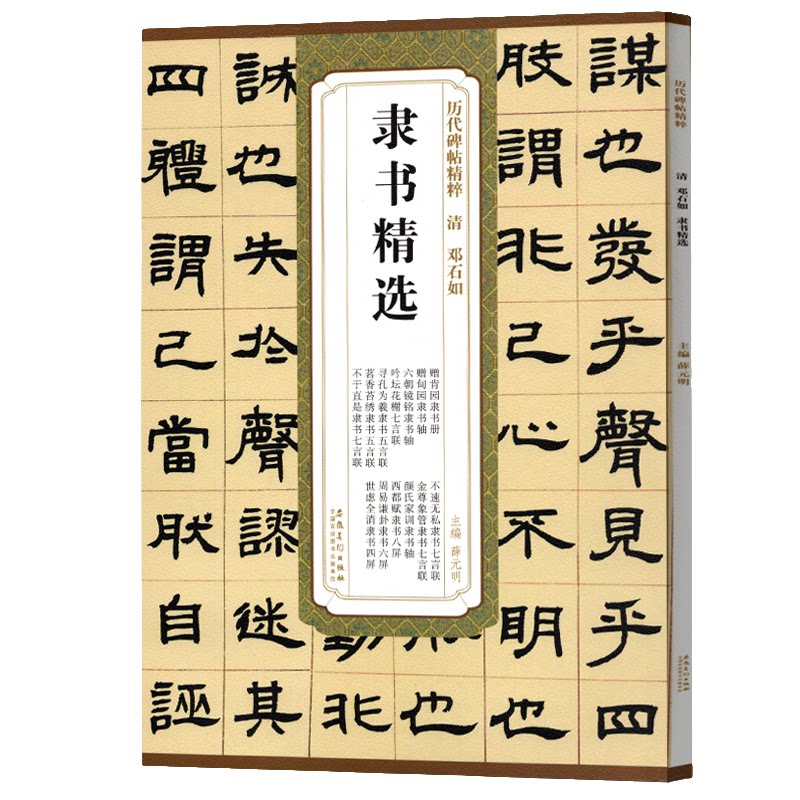 历代碑帖精粹 清 邓石如
隶书精选
赠肯园隶书册
赠甸园隶书轴
六朝镜铭隶书轴
吟坛花榭七言联
寻孔为羲隶书五言联
茗香苔绣隶书五言联
不于直是隶书七言联
不速无私隶书七言联
金尊象管隶书七言联
颜氏家训隶书轴
西都赋隶书八屏
周易谦卦隶书六屏
世虑全消隶书四屏
主编 薛元明
安徽美术出版社
全国百佳图书出版单位
謀也發乎聲見乎四
肢謂非己心不明也
也
動非
誠也失於聲謬迷其
四體謂己當肰自誣
历代碑帖精粹
清 邓石如 隶书精选
主编 薛元明
安徽美术出版社